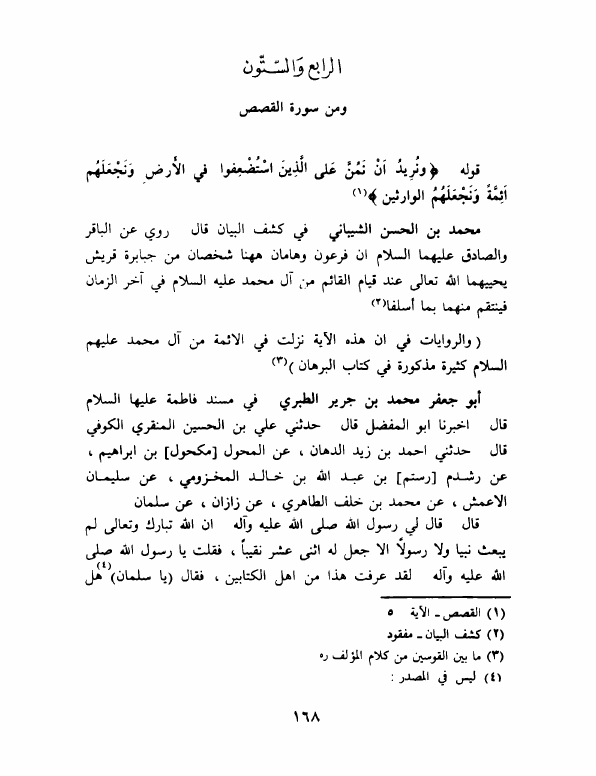 الرابع والستّون
ومن سورة القصص
قوله ﴿ ونُريدُ اَنْ نَمُنَّ عَلى الَّذِينَ اسْتُضْعِفوا في الأَرضِ وَنَجْعَلَهُم
اَئِمَّةً وَنَجْعَلَهُمُ الوارثين ﴾(١)
محمد بن الحسن الشيباني في كشف البيان قال روي عن الباقر
والصادق عليهما السلام ان فرعون وهامان ههنا شخصان من جبابرة قريش
يحييهما الله تعالى عند قيام القائم من آل محمد عليه السلام في آخر الزمان
فينتقم منهما بما أسلفا(٢)
( والروايات في ان هذه الآية نزلت في الائمة من آل محمد عليهم
السلام كثيرة مذكورة في كتاب البرهان )(٣)
أبو جعفر محمد بن جرير الطبري في مسند فاطمة عليها السلام
قال اخبرنا ابو المفضل قال حدثني علي بن الحسين المنقري الكوفي
قال حدثني احمد بن زيد الدهان ، عن المحول [مكحول] بن ابراهيم ،
عن رشدم [رستم] بن عبد الله بن خالد المخزومي ، عن سليمان
الاعمش ، عن محمد بن خلف الطاهري ، عن زازان ، عن سلمان
قال قال لي رسول الله صلى الله عليه وآله ان الله تبارك وتعالى لم
يبعث نبيا ولا رسولاً الا جعل له اثنى عشر نقيباً ، فقلت يا رسول الله صلى
الله عليه وآله لقد عرفت هذا من اهل الكتابين ، فقال (يا سلمان)(٤) هل
(١) القصص ـ الآية ٥
(٢) كشف البيان ـ مفقود
(٣) ما بين القوسين من كلام المؤلف ره
(٤) ليس في المصدر :
١٦٨